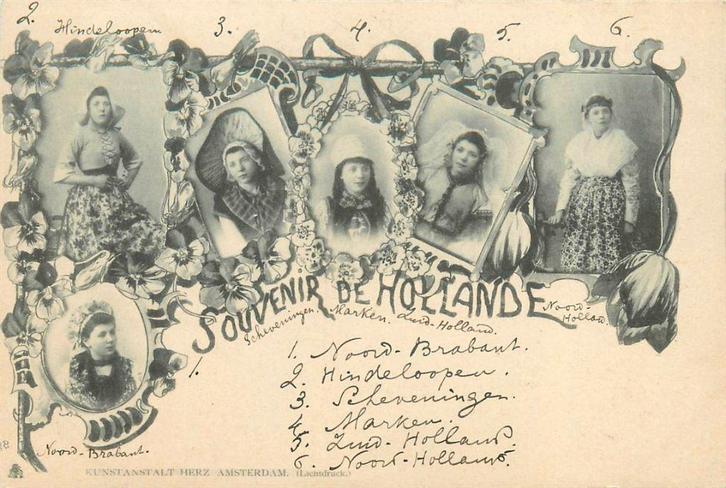 2. Hindeloopen 3. 4. 5. 6.
SOUVENIR DE HOLLANDE
Scheveningen. Marken. Zuid-Holland. Noord-Holland.
1.
1. Noord-Brabant.
2. Hindeloopen.
3. Scheveningen.
4. Marken.
5. Zuid-Holland.
6. Noord-Holland.
Noord-Brabant.
KUNSTANSTALT HERZ AMSTERDAM. (Lichtdruck.)